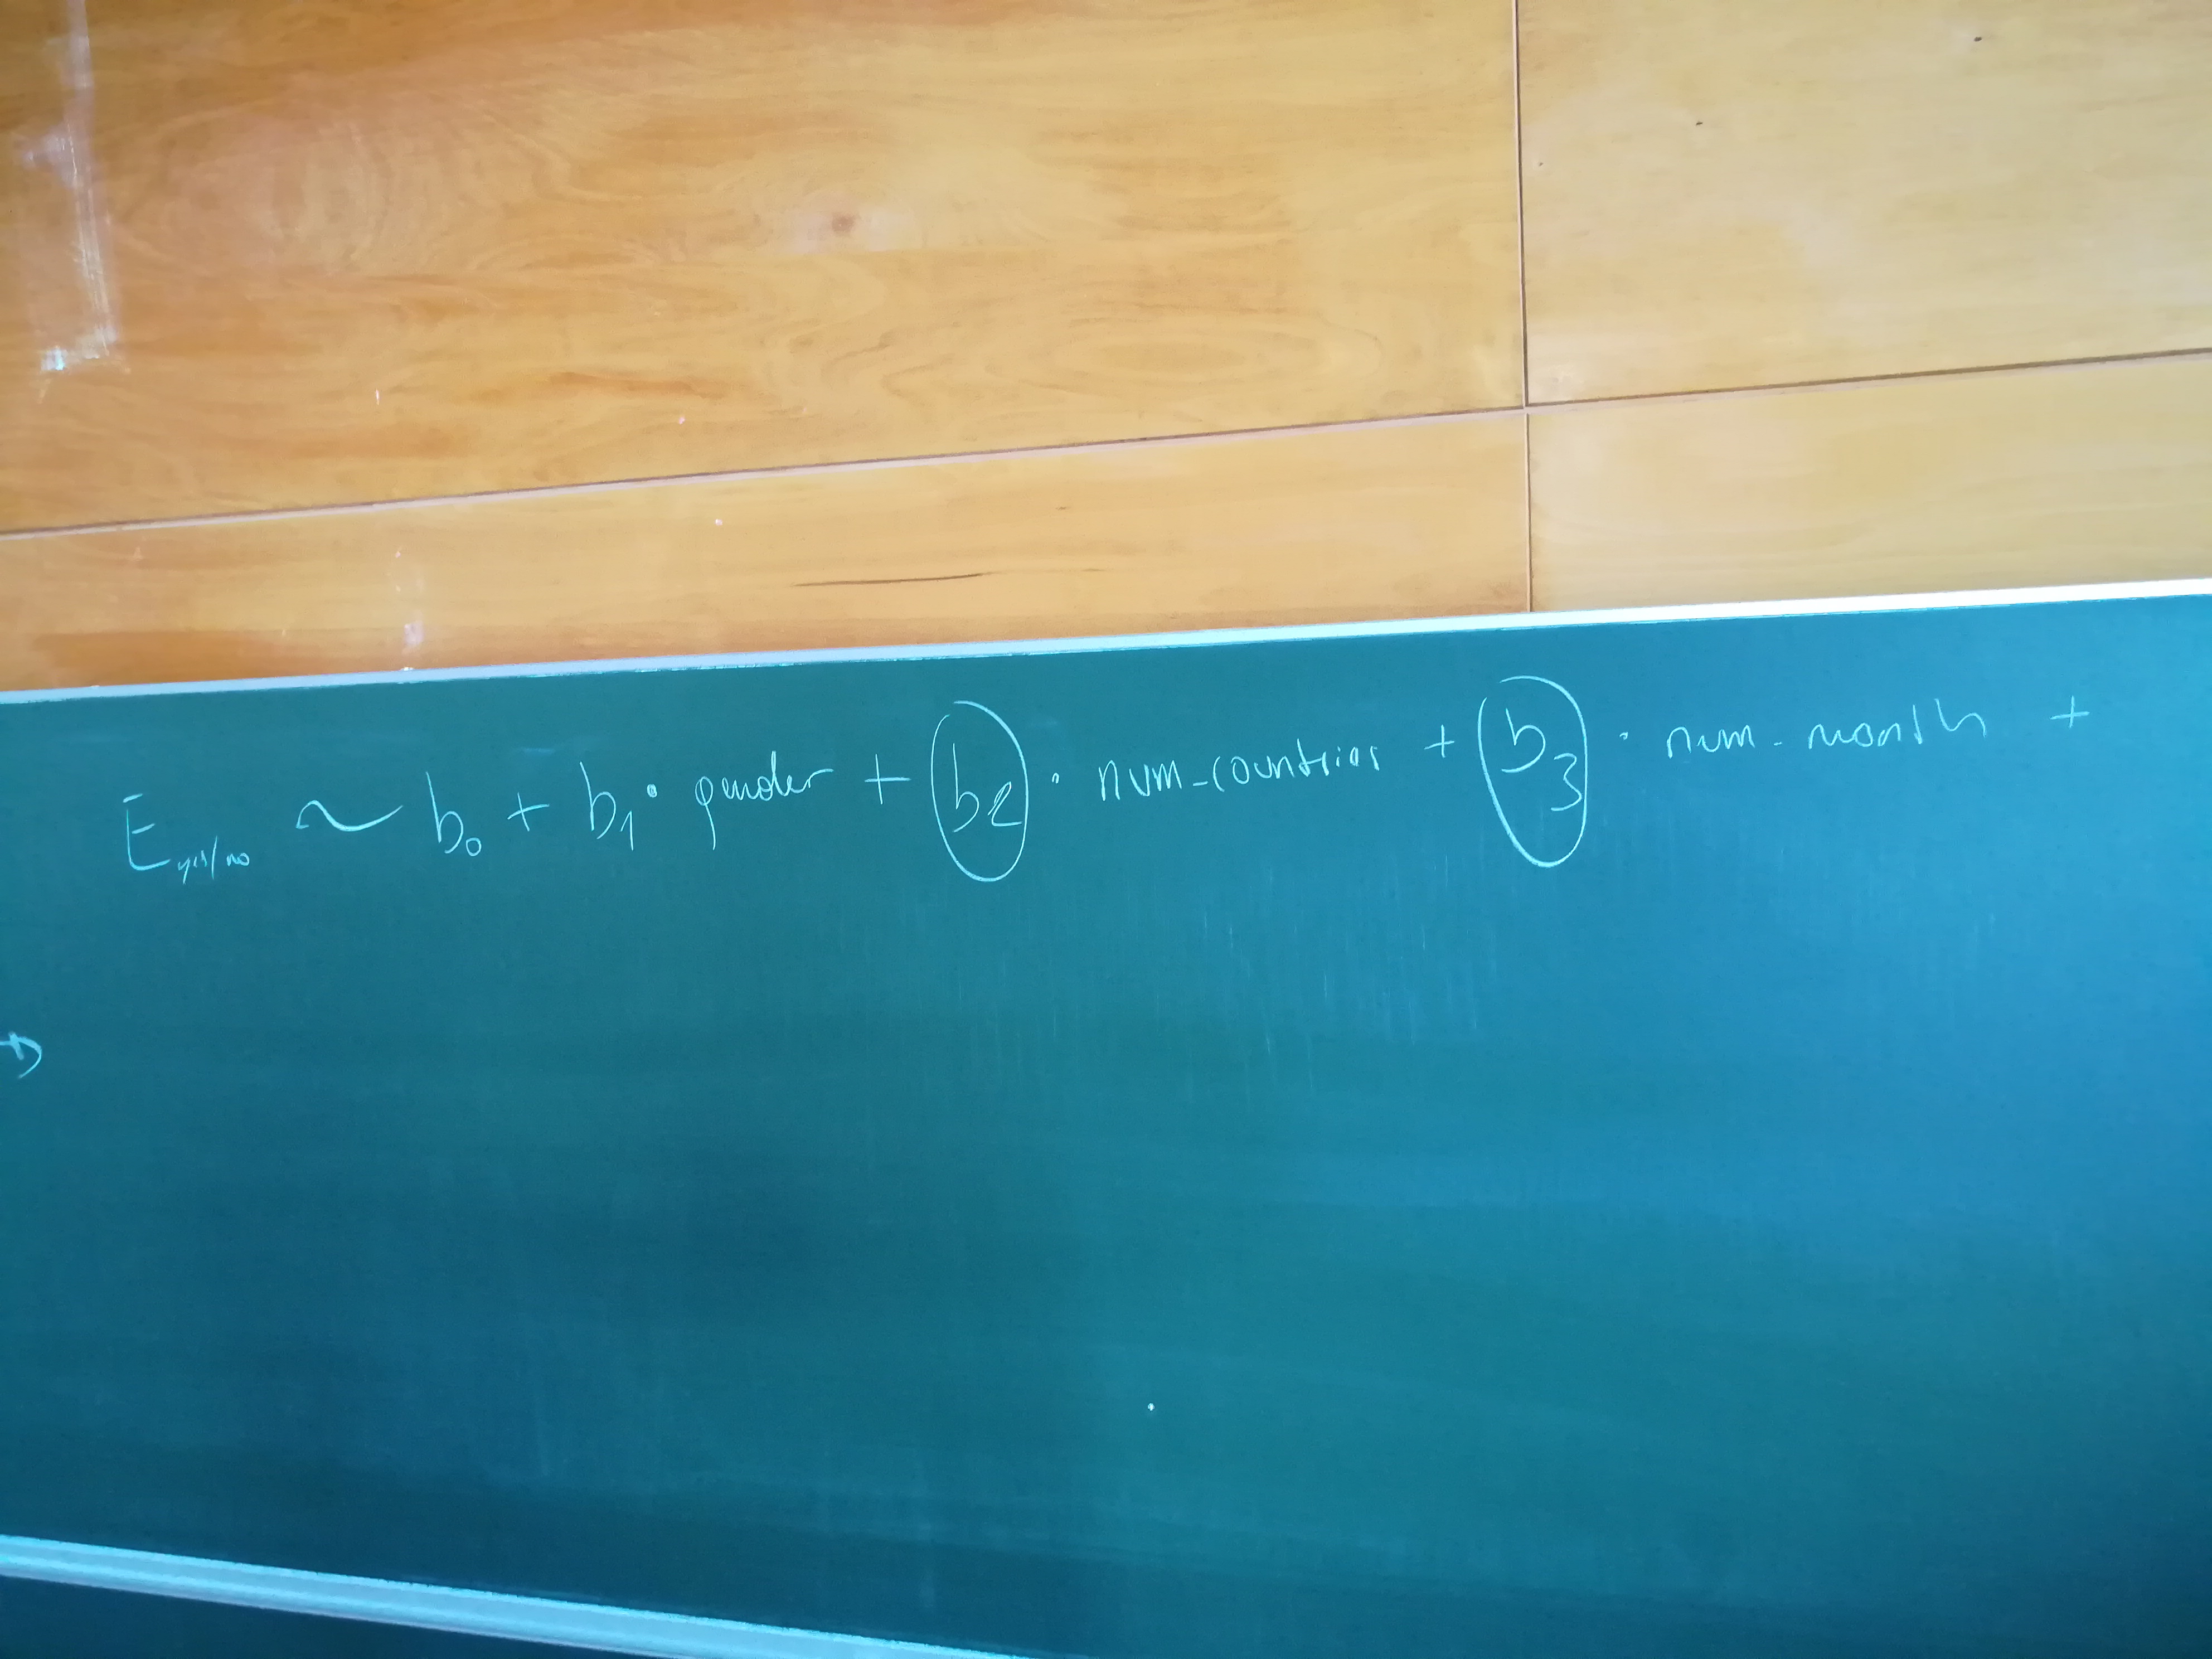 E yes/no ~ b0 + b1 · gender + b2 · num-countries + b3 · num-month +